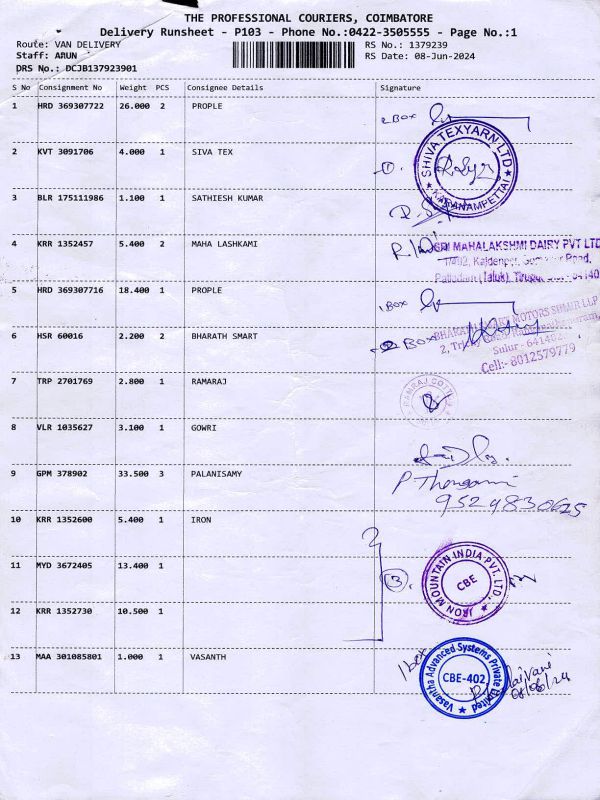 THE PROFESSIONAL COURIERS, COIMBATORE
Delivery Runsheet - P103 - Phone No.:0422-3505555 - Page No.:1
Route: VAN DELIVERY RS No.: 1379239
Staff: ARUN RS Date: 08-Jun-2024
DRS No.: DCJB137923901
S No Consignment No Weight PCS Consignee Details Signature
1 HRD 369307722 26.000 2 PROPLE
2 BOX
2 KVT 3091706 4.000 1 SIVA TEX
SHIVA TEXYARN LTD
KARANAMPETTAI
3 BLR 175111986 1.100 1 SATHIESH KUMAR
4 KRR 1352457 5.400 2 MAHA LASHKAMI
SRI MAHALAKSHMI DAIRY PVT LTD
Road,
Palladam (Taluk),
5 HRD 369307716 18.400 1 PROPLE
1 BOX
6 HSR 60016 2.200 2 BHARATH SMART
2 BOX
BHARATH SMART MOTORS SLMIR LLP
Sulur - 641402
Cell:- 8012579779
7 TRP 2701769 2.800 1 RAMARAJ
8 VLR 1035627 3.100 1 GOWRI
9 GPM 378902 33.500 3 PALANISAMY
9524830625
10 KRR 1352600 5.400 1 IRON
11 MYD 3672405 13.400 1
3
IRON MOUNTAIN INDIA PVT. LTD.
CBE
12 KRR 1352730 10.500 1
13 MAA 301085801 1.000 1 VASANTH
1 box
Vasantha Advanced Systems Private Limited
CBE-402
08/06/24